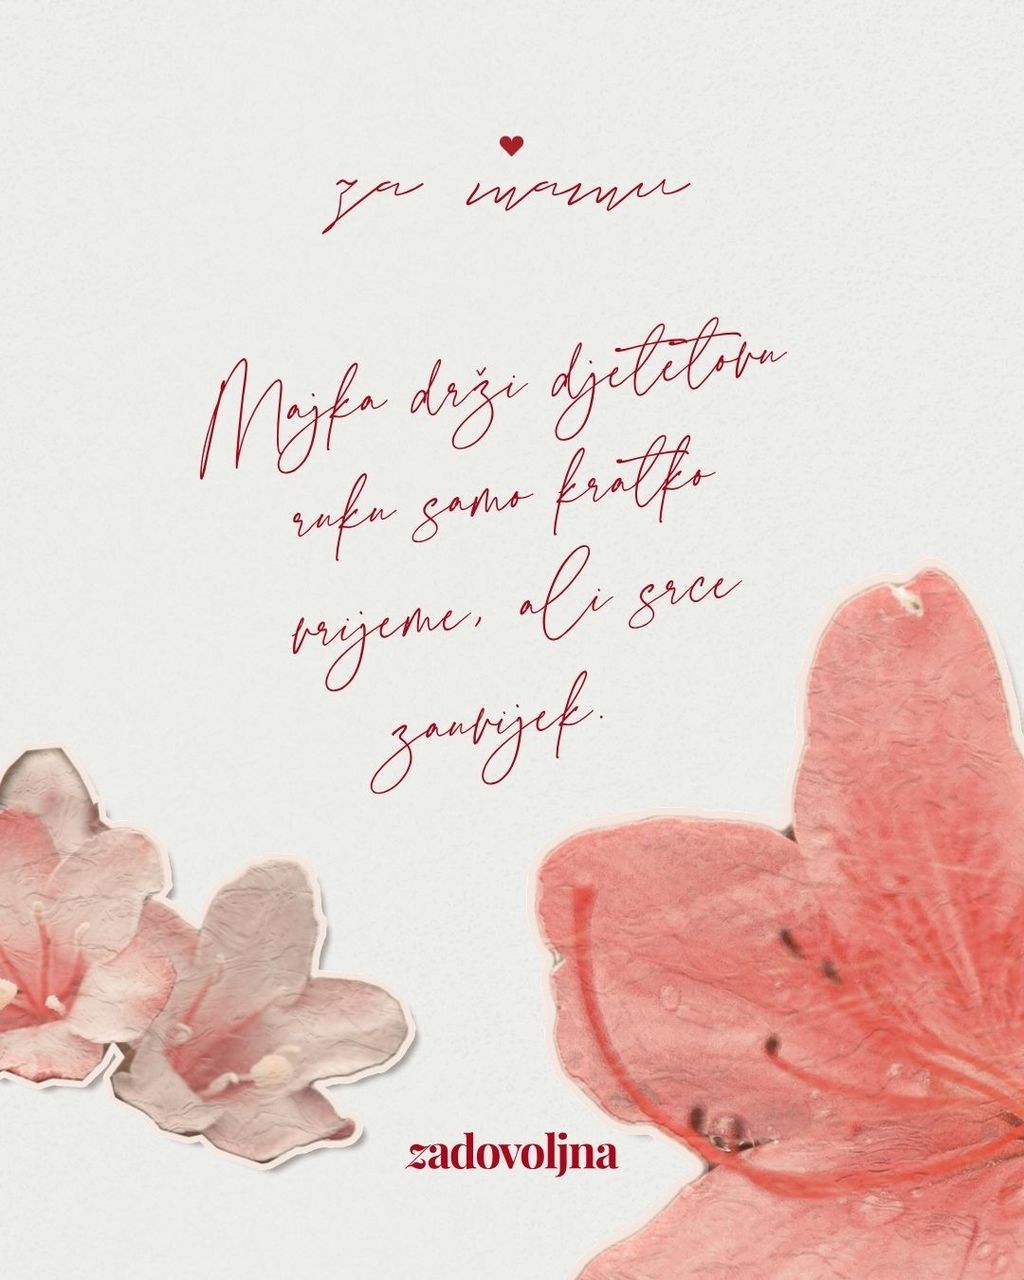 za mamu
Majka drži djetetovu
ruku samo kratko
vrijeme, ali srce
zauvijek.
zadovoljna